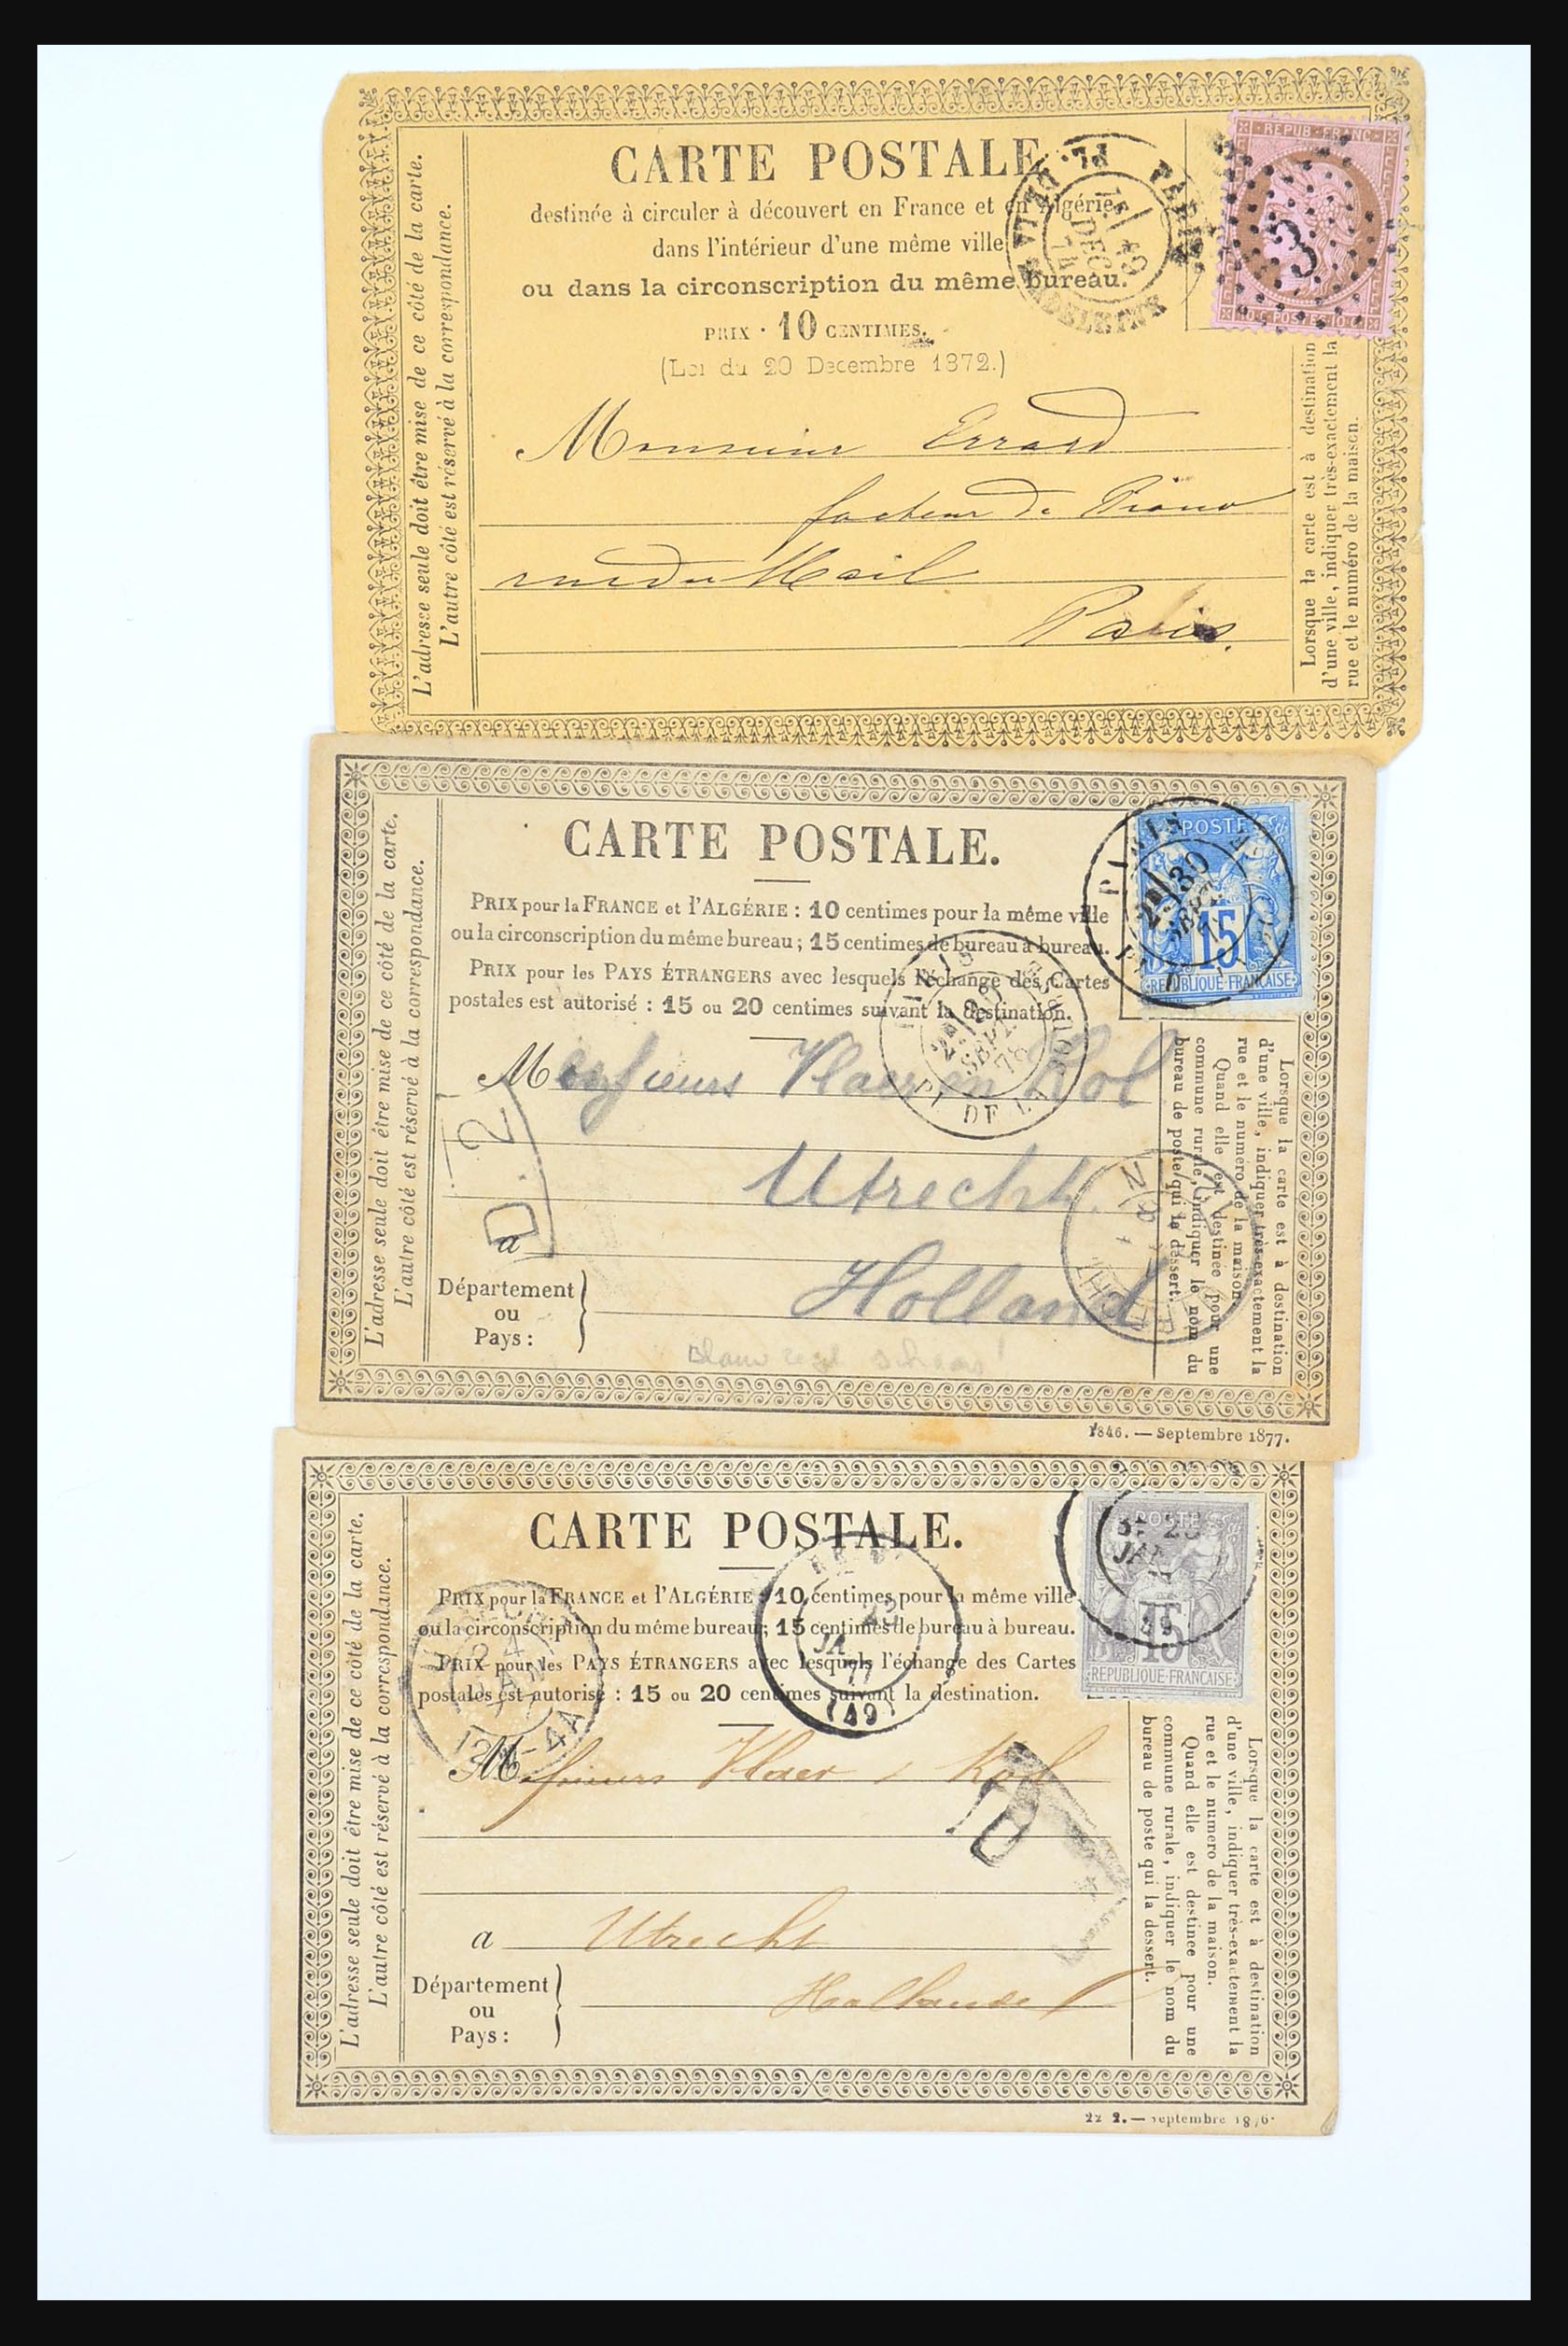 CARTE POSTALE
destinée à circuler à découvert en France et en Algérie
dans l'intérieur d'une même ville
ou dans la circonscription du même bureau.
PRIX · 10 CENTIMES.
(Loi du 20 Decembre 1872.)
L'adresse seule doit être mise de ce côté de la carte.
L'autre côté est réservé à la correspondance.
PARIS
PL. DE LA MADELEINE
DEC
74
REPUB·FRANC·
3
10·C·POSTES·10·C
Monsieur Errard
facteur de Piano
rue du Mail
Paris.
Lorsque la carte est à destination
d'une ville, indiquer très-exactement la
rue et le numéro de la maison.
CARTE POSTALE.
PRIX pour la FRANCE et l'ALGÉRIE : 10 centimes pour la même ville
ou la circonscription du même bureau; 15 centimes de bureau à bureau.
PRIX pour les PAYS ÉTRANGERS avec lesquels l'échange des Cartes
postales est autorisé : 15 ou 20 centimes suivant la destination.
L'adresse seule doit être mise de ce côté de la carte.
L'autre côté est réservé à la correspondance.
PARIS
30
SEPT
POSTE
15
REPUBLIQUE FRANÇAISE
SEPT
78
PL. DE LA BOURSE
Messieurs Vlaer en Kol
Utrecht
Holland
D. 2
a
Département
ou
Pays :
UTRECHT
Blauw zegel schaars!
Lorsque la carte est à destination
d'une ville, indiquer très-exactement la
rue et le numero de la maison.
Quand elle est destinée pour une
commune rurale, indiquer le nom du
bureau de poste qui la dessert.
1846. — Septembre 1877.
CARTE POSTALE.
PRIX pour la FRANCE et l'ALGÉRIE : 10 centimes pour la même ville
ou la circonscription du même bureau; 15 centimes de bureau à bureau.
PRIX pour les PAYS ÉTRANGERS avec lesquels l'échange des Cartes
postales est autorisé : 15 ou 20 centimes suivant la destination.
L'adresse seule doit être mise de ce côté de la carte.
L'autre côté est réservé à la correspondance.
POSTE
15
REPUBLIQUE FRANÇAISE
23
JAN
77
(49)
24
JAN
12M-4A
Messieurs Vlaer & Kol
PD
a Utrecht
Département
ou
Pays :
Hollande
Lorsque la carte est à destination
d'une ville, indiquer très-exactement la
rue et le numero de la maison.
Quand elle est destinee pour une
commune rurale, indiquer le nom du
bureau de poste qui la dessert.
Septembre 1876.